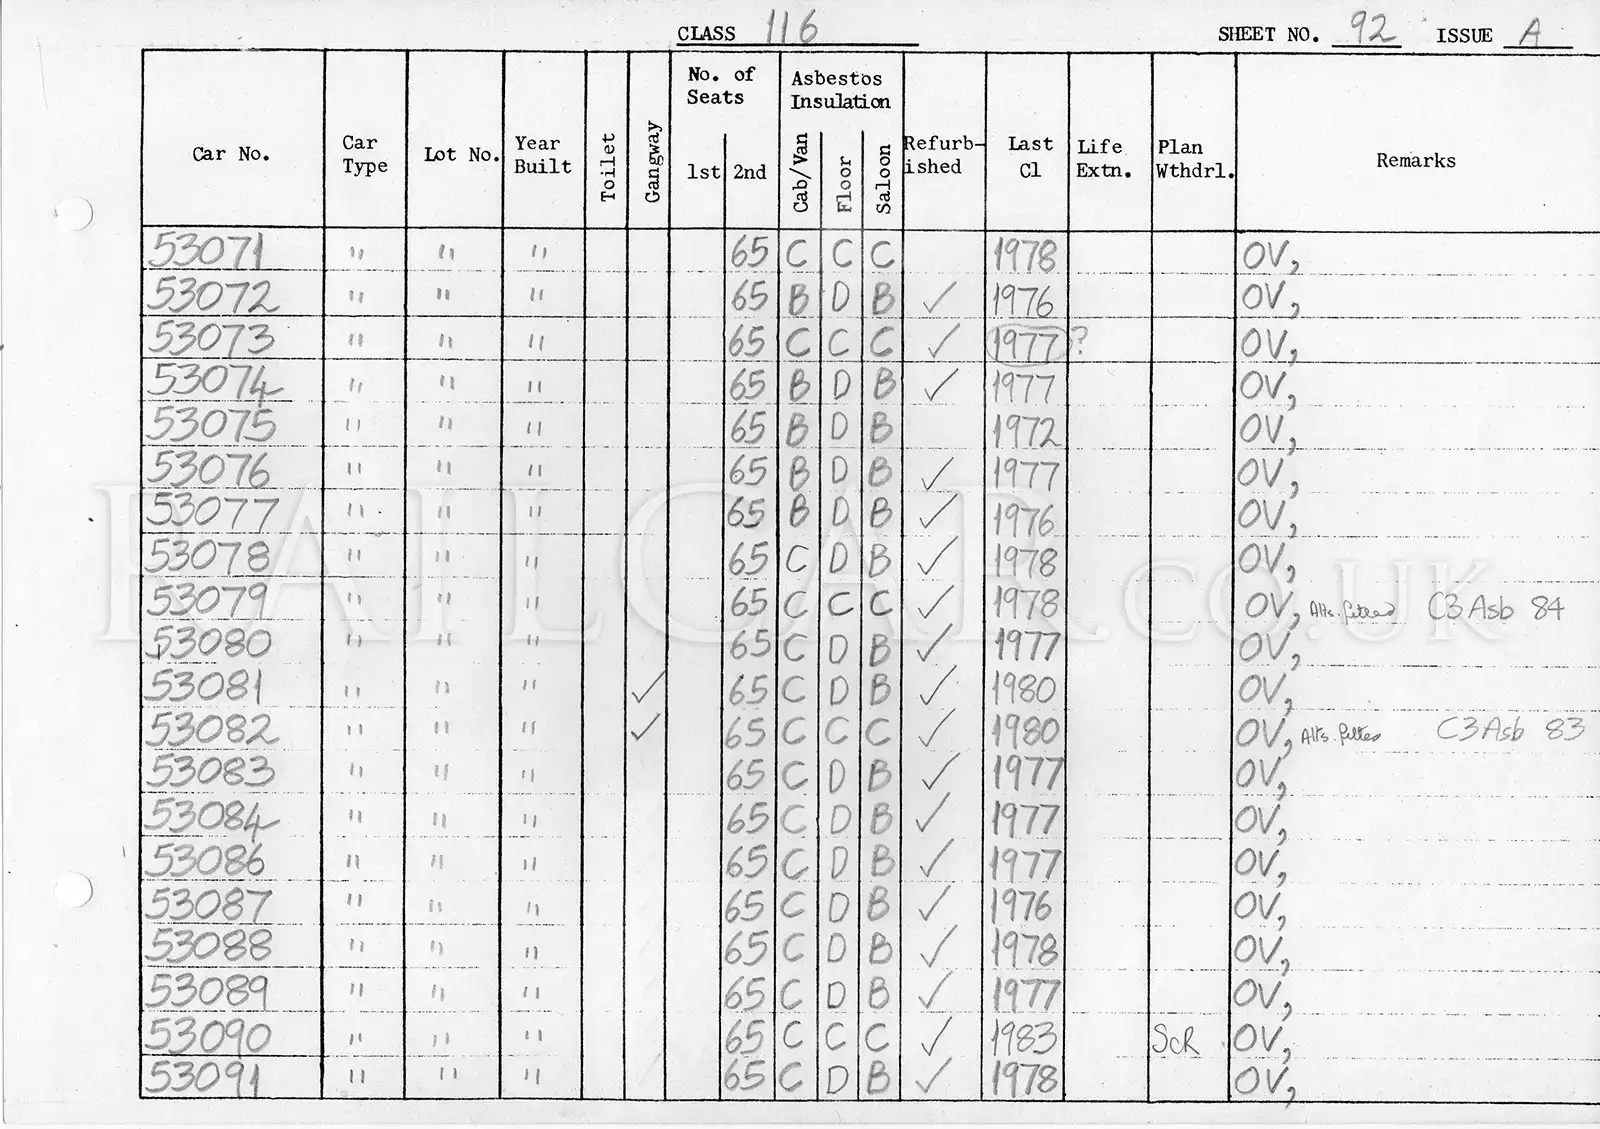 CLASS 116 SHEET NO. 92 ISSUE A
Car No. Car Type Lot No. Year Built Toilet Gangway No. of Seats 1st 2nd Asbestos Insulation Cab/Van Floor Saloon Refurb-ished Last Cl Life Extn. Plan Wthdrl. Remarks
53071 " " " 65 C C C 1978 OV,
53072 " " " 65 B D B ✓ 1976 OV,
53073 " " " 65 C C C ✓ 1977 ? OV,
53074 " " " 65 B D B ✓ 1977 OV,
53075 " " " 65 B D B 1972 OV,
53076 " " " 65 B D B ✓ 1977 OV,
53077 " " " 65 B D B ✓ 1976 OV,
53078 " " " 65 C D B ✓ 1978 OV,
53079 " " " 65 C C C ✓ 1978 OV, Alts. fitted C3 Asb 84
53080 " " " 65 C D B ✓ 1977 OV,
53081 " " " ✓ 65 C D B ✓ 1980 OV,
53082 " " " ✓ 65 C C C ✓ 1980 OV, Alts. fitted C3 Asb 83
53083 " " " 65 C D B ✓ 1977 OV,
53084 " " " 65 C D B ✓ 1977 OV,
53086 " " " 65 C D B ✓ 1977 OV,
53087 " " " 65 C D B ✓ 1976 OV,
53088 " " " 65 C D B ✓ 1978 OV,
53089 " " " 65 C D B ✓ 1977 OV,
53090 " " " 65 C C C ✓ 1983 ScR OV,
53091 " " " 65 C D B ✓ 1978 OV,
RAILCAR.CO.UK